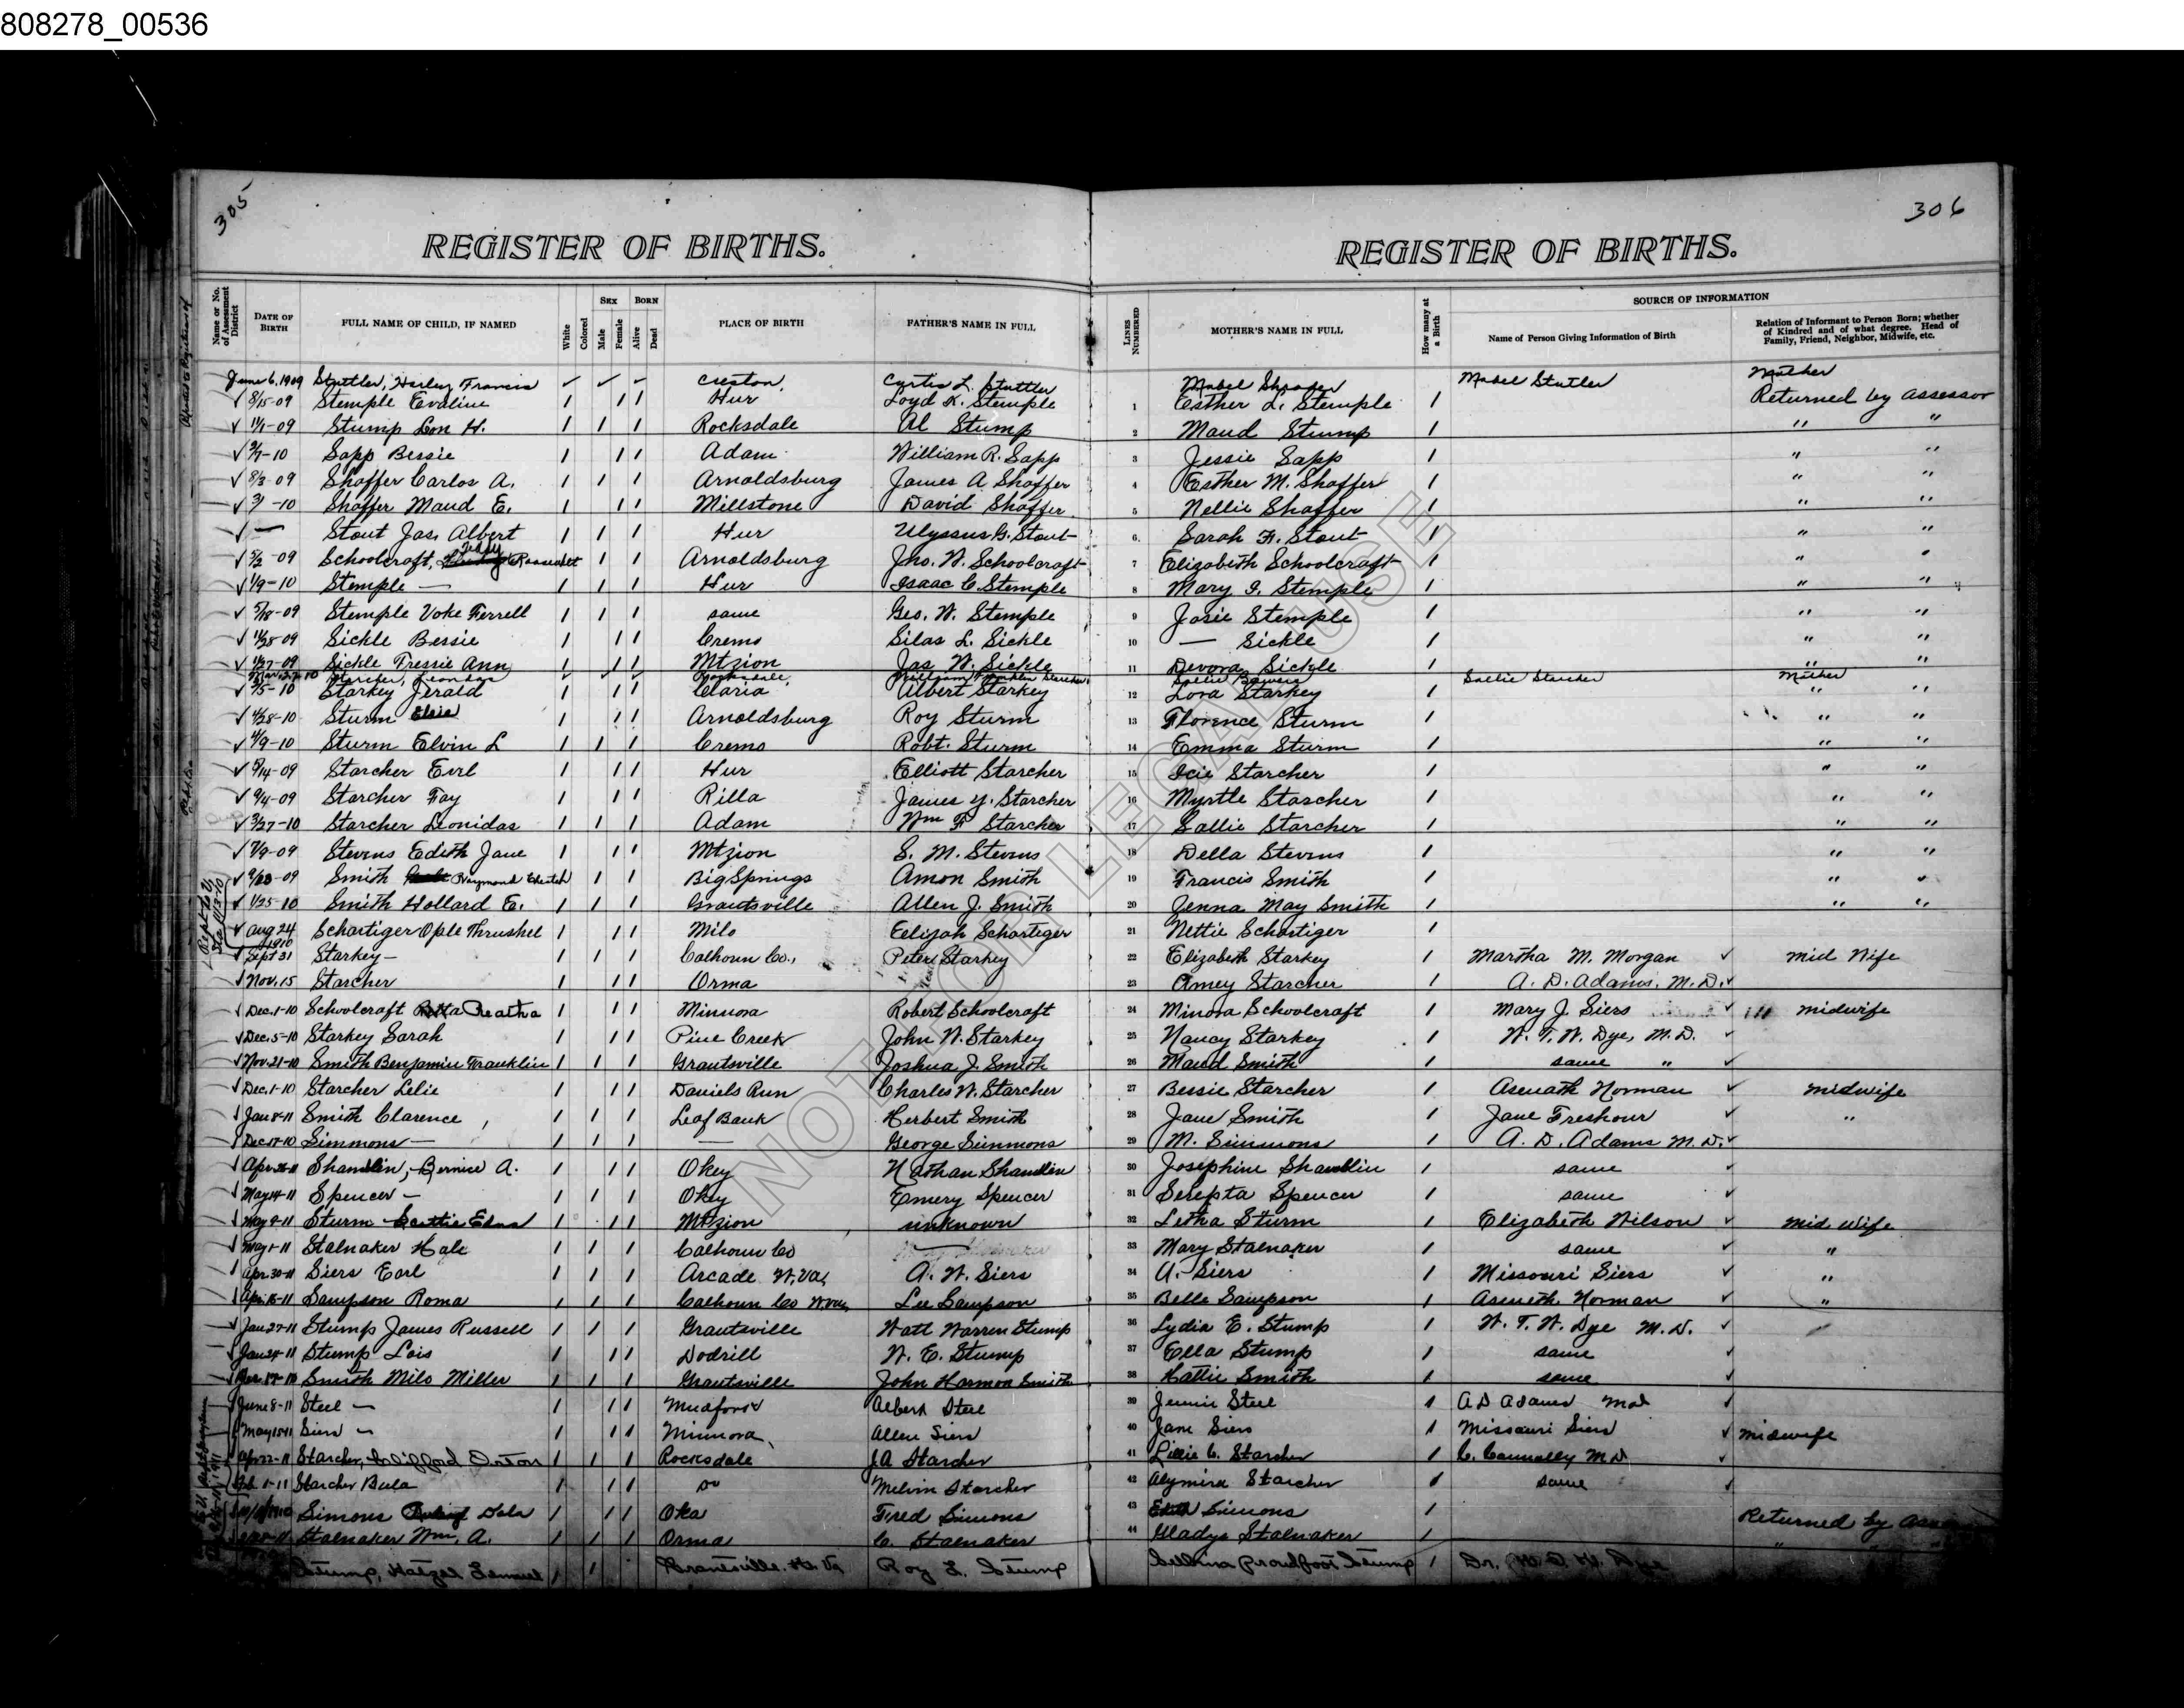 808278_00536
305
306
REGISTER OF BIRTHS.
REGISTER OF BIRTHS.
Name or No. of Assessment District DATE OF BIRTH FULL NAME OF CHILD, IF NAMED White Colored SEX Male Female BORN Alive Dead PLACE OF BIRTH FATHER'S NAME IN FULL LINES NUMBERED MOTHER'S NAME IN FULL How many at a Birth SOURCE OF INFORMATION Name of Person Giving Information of Birth Relation of Informant to Person Born; whether of Kindred and of what degree. Head of Family, Friend, Neighbor, Midwife, etc.
June 6, 1909 Stutler, Harley Francis ✓ ✓ ✓ Creston, Curtis L. Stutler Mabel Shrader Mabel Stutler Mother
✓ 8/15-09 Stemple Evaline 1 1 1 Hur Loyd K. Stemple 1 Esther L. Stemple 1 Returned by assessor
✓ 11/1-09 Stump Lon H. 1 1 1 Rocksdale Al Stump 2 Maud Stump 1 " "
✓ -10 Sapp Bessie 1 1 1 Adam William R. Sapp 3 Jessie Sapp 1 " "
✓ 8/3-09 Shaffer Carlos A. 1 1 1 Arnoldsburg James A Shaffer 4 Esther M. Shaffer 1 " "
✓ 3/ -10 Shaffer Maud E. 1 1 1 Millstone David Shaffer 5 Nellie Shaffer 1 " "
✓ — Stout Jas. Albert 1 1 1 Hur Ulyssus G. Stout 6 Sarah F. Stout 1 " "
✓ 5/2-09 Schoolcraft, Teddy Roosevelt 1 1 Arnoldsburg Jno. W. Schoolcraft 7 Elizabeth Schoolcraft 1 " "
✓ 1/9-10 Stemple — 1 1 1 Hur Isaac C. Stemple 8 Mary I. Stemple 1 " "
✓ 5/18-09 Stemple Voke Ferrell 1 1 1 same Geo. W. Stemple 9 Josie Stemple 1 " "
✓ 11/28-09 Sickle Bessie 1 1 1 Cremo Silas L. Sickle 10 — Sickle 1 " "
✓ 11/27-09 Sickle Tressie Ann 1 1 1 Mtzion Jas. W. Sickle 11 Devora Sickle 1 " "
Mar. 27-10 Starcher, ✓ ✓ ✓ Rocksdale, William Franklin Starcher Sallie Bowers Sallie Starcher Mother
✓ /5-10 Starkey Jerald 1 1 1 Claria Albert Starkey 12 Lora Starkey 1 " "
✓ 4/28-10 Sturm Elsie 1 1 1 Arnoldsburg Roy Sturm 13 Florence Sturm 1 " "
✓ 4/9-10 Sturm Elvin L 1 1 1 Cremo Robt. Sturm 14 Emma Sturm 1 " "
✓ 8/14-09 Starcher Evrl 1 1 1 Hur Elliott Starcher 15 Icie Starcher 1 " "
✓ 9/4-09 Starcher Fay 1 1 1 Rilla James Y. Starcher 16 Myrtle Starcher 1 " "
✓ 3/27-10 Starcher Leonidas 1 1 1 Adam Wm F Starcher 17 Sallie Starcher 1 " "
✓ 7/9-09 Stevens Edith Jane 1 1 1 Mtzion S. M. Stevens 18 Della Stevens 1 " "
✓ 9/23-09 Smith Raymond 1 1 Big Springs Amon Smith 19 Francis Smith 1 " "
✓ 1/25-10 Smith Hollard E. 1 1 1 Grantsville Allen J. Smith 20 Jenna May Smith 1 " "
✓ Aug 24 1910 Schartiger Ople Thrushel 1 1 1 Milo Eelijah Schartiger 21 Nettie Schartiger 1
✓ Sept 31 Starkey — 1 1 1 Calhoun Co., Peter Starkey 22 Elizabeth Starkey 1 Martha M. Morgan ✓ mid Wife
✓ Nov. 15 Starcher 1 1 1 Orma 23 Amey Starcher 1 A. D. Adams. M. D. ✓
✓ Dec. 1-10 Schoolcraft Reatha 1 1 1 Minnora Robert Schoolcraft 24 Minora Schoolcraft 1 Mary J. Siers ✓ midwife
✓ Dec. 5-10 Starkey Sarah 1 1 1 Pine Creek John W. Starkey 25 Nancy Starkey 1 W. T. W. Dye, M. D. ✓
✓ Nov. 21-10 Smith Benjamin Franklin 1 1 1 Grantsville Joshua J. Smith 26 Maud Smith 1 same " ✓
✓ Dec. 1-10 Starcher Lelie 1 1 1 Daniels Run Charles W. Starcher 27 Bessie Starcher 1 Asenath Norman ✓ midwife
✓ Jan 8-11 Smith Clarence 1 1 1 Leaf Bank Herbert Smith 28 Jane Smith 1 Jane Freshour ✓ "
✓ Dec 17-10 Simmons — 1 1 1 — George Simmons 29 M. Simmons 1 A. D. Adams M. D. ✓
✓ Apr. 26-11 Shamblin, Bernice A. 1 1 1 Okey Nathan Shamblin 30 Josephine Shamblin 1 same ✓
✓ May 14-11 Spencer — 1 1 1 Okey Emery Spencer 31 Serepta Spencer 1 same ✓
✓ May 9-11 Sturm Edna 1 1 1 Mtzion unknown 32 Letha Sturm 1 Elizabeth Wilson ✓ mid wife
✓ May 1-11 Stalnaker Hale 1 1 1 Calhoun Co — 33 Mary Stalnaker 1 same ✓ "
✓ Apr. 30-11 Siers Earl 1 1 1 Arcade W. Va, A. W. Siers 34 A. Siers 1 Missouri Siers ✓ "
✓ Apr. 15-11 Sampson Roma 1 1 1 Calhoun Co W.Va, Lee Sampson 35 Belle Sampson 1 Aseneth Norman ✓ "
✓ Jan 27-11 Stump James Russell 1 1 1 Grantsville Watt Warren Stump 36 Lydia E. Stump 1 W. T. W. Dye M. D. ✓
✓ Jan 24-11 Stump Lois 1 1 1 Dodrill W. E. Stump 37 Ella Stump 1 same ✓
✓ 17-10 Smith Milo Miller 1 1 1 Grantsville John Harmon Smith 38 Hattie Smith 1 same ✓
✓ June 8-11 Steel — 1 1 1 Mudford Albert Steel 39 Jennie Steel 1 A D Adams Md ✓
✓ May 15-11 Siers — 1 1 1 Minnora Allen Siers 40 Jane Siers 1 Missouri Siers ✓ midwife
✓ Apr 22-11 Starcher, Clifford Orton 1 1 1 Rocksdale J.A Starcher 41 Lillie C. Starcher 1 C. Connolly M D ✓
Feb. 1-11 Starcher Bula 1 1 1 do Melvin Starcher 42 Alymira Starcher 1 same ✓
Simons Dola 1 1 1 Oka Fred Simons 43 Simons 1 Returned by
Stalnaker Wm. A. 1 1 1 Orma C. Stalnaker 44 Gladys Stalnaker 1 "
Stump, Hatzel 1 1 Grantsville. W. Va Roy E. Stump Proudfoot Stump 1 Dr. W. T. W. Dye
NOT FOR LEGAL USE